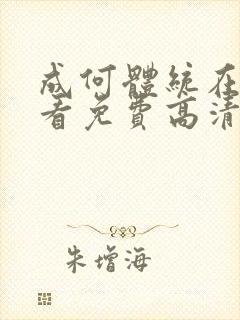 成何體統在
看免費高清
朱增海